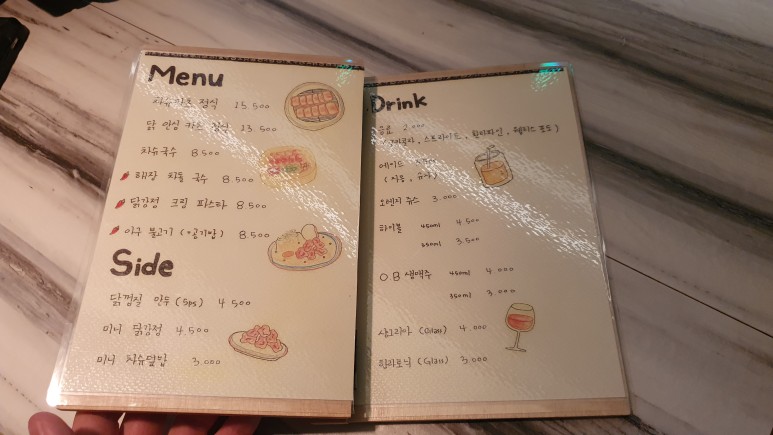 Menu
카츠 정식 15.500
닭 안심 카츠 정식 13.500
차슈국수 8.500
해장 차돌 국수 8.500
닭강정 크림 파스타 8.500
아구 불고기 (+공기밥) 8.500
Side
닭껍질 만두 (5ps) 4.500
미니 닭강정 4.500
미니 차슈덮밥 3.000
Drink
음료 2.000
스프라이트, 웰치스 포도 )
에이드
( 자몽, 유자 )
오렌지 쥬스 3.000
하이볼 450ml 4.500
350ml 3.500
O.B 생맥주 450ml 4.000
350ml 3.000
샹그리아 (Glass) 4.000
(Glass) 3.000